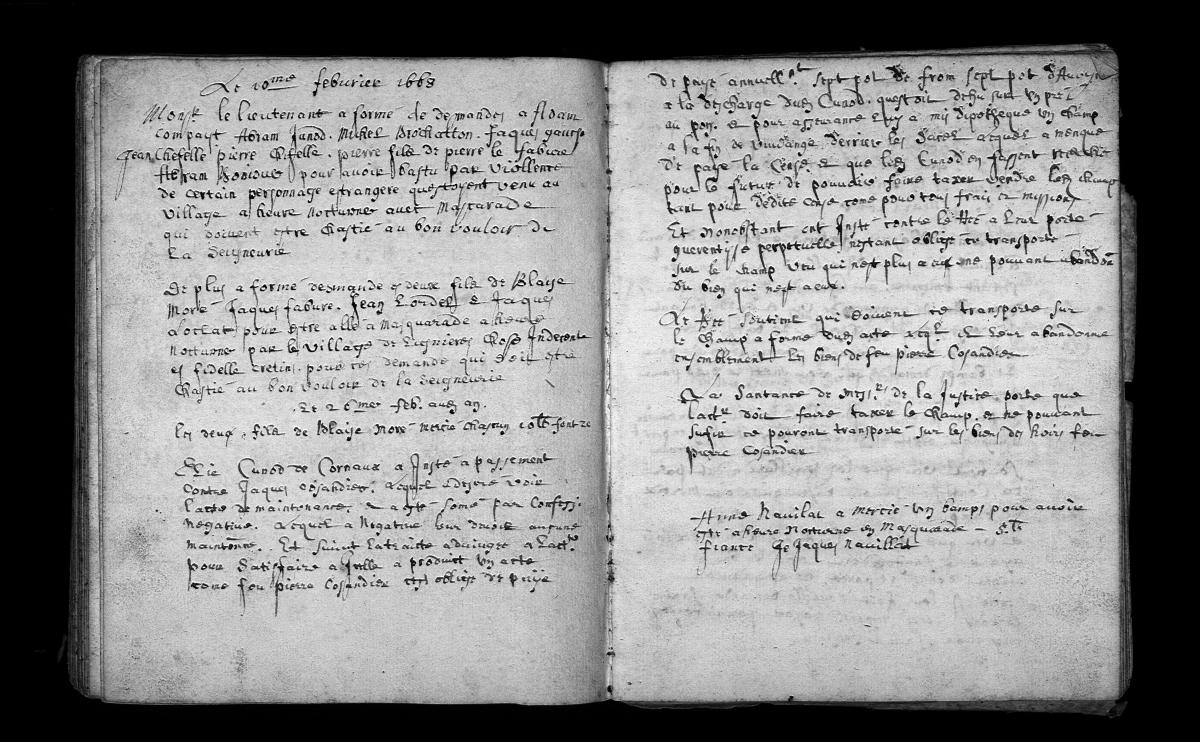 Le 10me febvrier 1668
Monsr le lieutenant a formé de demandes a Adam
Compagt Abram Junod. Michel Brochatton. Jaques
Jean Cheffelle pierre Chiffelle. pierre filz de pierre le fabvre
Abram pour avoir bastu par viollence
de certain personnage estrangere questoyent venu au
village a heure nocturne avec Mascarade
qui doivent estre Chastié au bon vouloir de
La Seigneurie
De plus a formé demande es deux filz de Blaise
Moré Jaques fabvre. Jean Lordel & Jaques
pour estre allé a Masquarade a heure
nocturne par le village de Lignieres Chose Indecente
es fidelle Cretins, pour ces demande qui doit estre
Chastié au bon vouloir de la Seigneurie
Le 26me feb. aud. an.
les deux filz de Blaise Moré mercié Chascun
Elie Cunod de Cornaux a Insté a passement
Contre Jaques Cosandier. Lequel desire voir
lacte de maintenance, & a esté somé par Confess:
negative. Lequel a Negative leur devoir aucune
maintenne. Et suivt Latraicte adviugee a Lactr
pour satisfaire a Icelle a produict un acte
come feu pierre Cosandier est obligé de paye
de paye annuellmt sept pot de from sept pot d'Avoyne
a la descharge dud. Cunod. questoit dehu sur un prel
au & pour asseurance luy a mis dipotheque un Champ
a la fin de derrier les lequel a menque
de paye la Cense & que led. Cunod en fassent recerche
pour le future de pouvoir faire taxer vendre led. Champ
tant pour dedite Cense come pour tous frais & missions
Et Nonobstant ont Insté contre le Rec a leur porté
querentisse perpetuelle nestant obligé ce transporté
sur le Champ veu qui nest plus a eux ne pouvant abandon
du bien qui nest a eux.
Le Rec soutient qui doivent ce transporte sur
le Champ a forme dud. acte & leur abandonne
ensemblement les biens de feu pierre Cosandier
La Santance de Messrs de la Justice porte que
lactr doit faire taxer le Champ & ne pouvant
sufir ce pouront transporté sur les biens des hoirs feu
pierre Cosandier
Anne Navilat a mercié un bamps pour avoir
esté a heure Nocturne en Masquarade
france Jaques Navillat